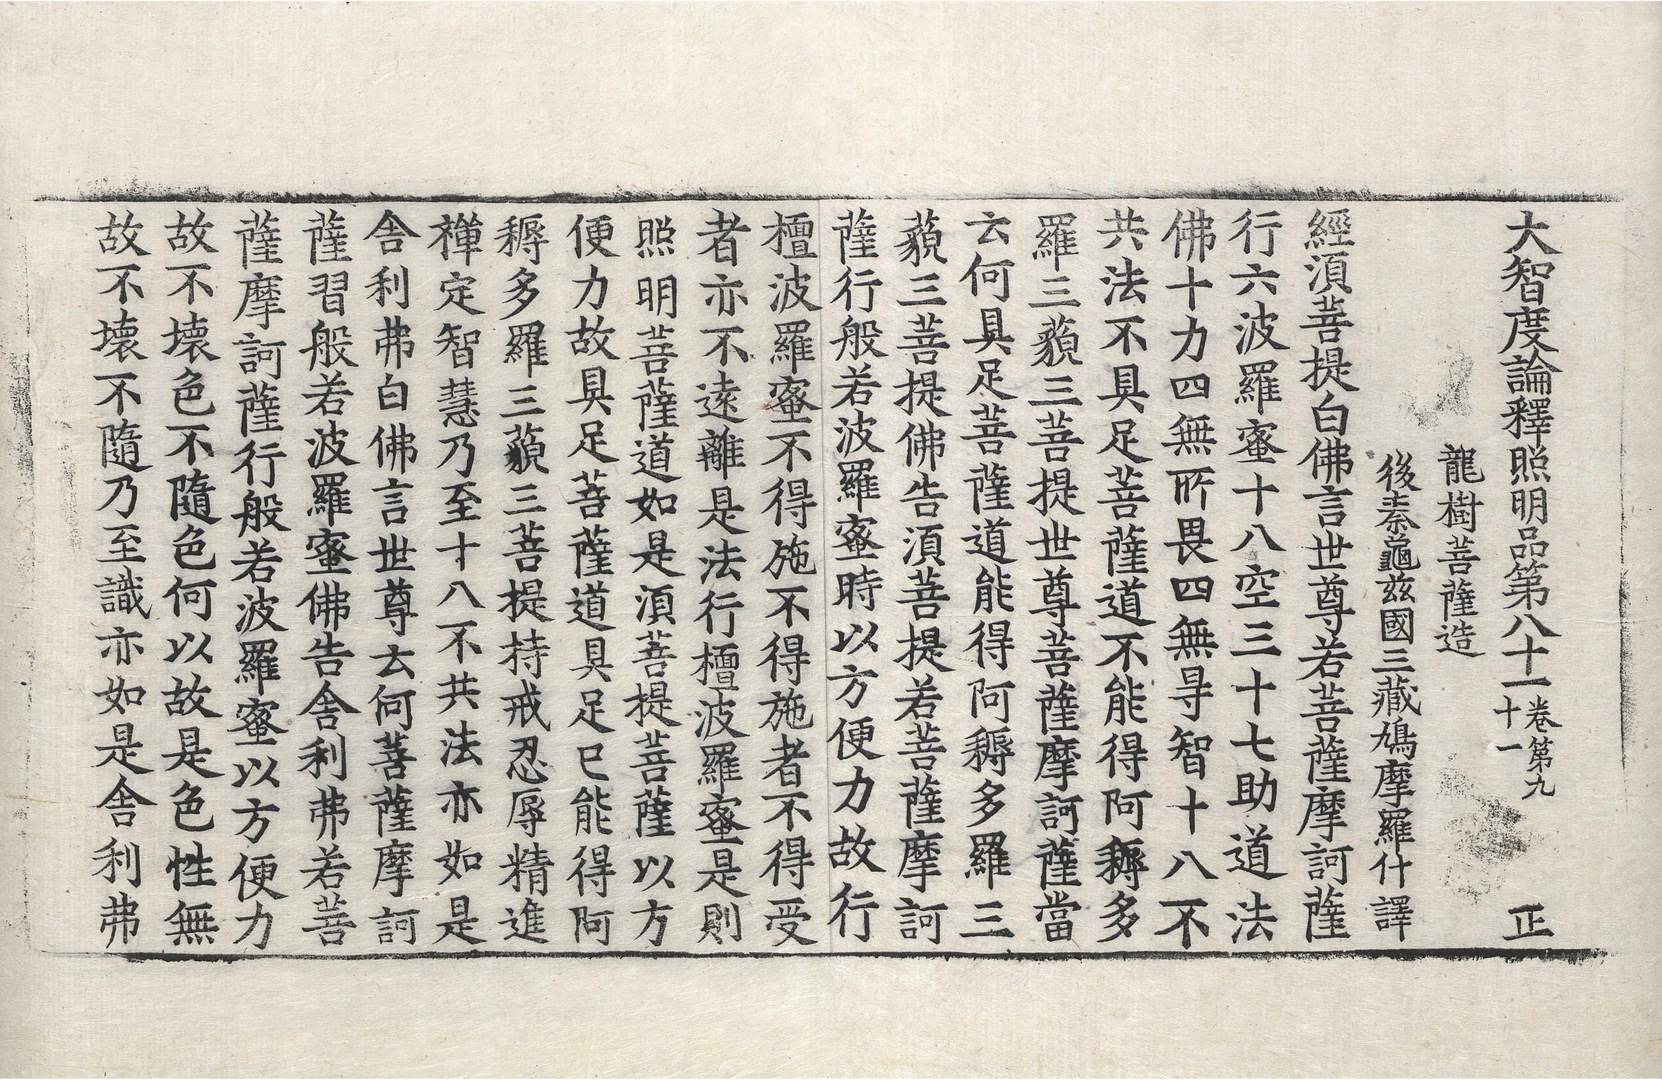 大智度論釋照明品第八十一 卷第九十一 正
龍樹菩薩造
後秦龜茲國三藏鳩摩羅什譯
經湏菩提白佛言世尊若菩薩摩訶薩
行六波羅蜜十八空三十七助道法
佛十力四無所畏四無㝵智十八不
共法不具足菩薩道不能得阿耨多
羅三藐三菩提世尊菩薩摩訶薩當
云何具足菩薩道能得阿耨多羅三
藐三菩提佛告湏菩提若菩薩摩訶
薩行般若波羅蜜時以方便力故行
檀波羅蜜不得施不得施者不得受
者亦不遠離是法行檀波羅蜜是則
照明菩薩道如是湏菩提菩薩以方
便力故具足菩薩道具足已能得阿
耨多羅三藐三菩提持戒忍辱精進
禪定智慧乃至十八不共法亦如是
舍利弗白佛言世尊云何菩薩摩訶
薩習般若波羅蜜佛告舍利弗若菩
薩摩訶薩行般若波羅蜜以方便力
故不壞色不隨色何以故是色性無
故不壞不隨乃至識亦如是舍利弗